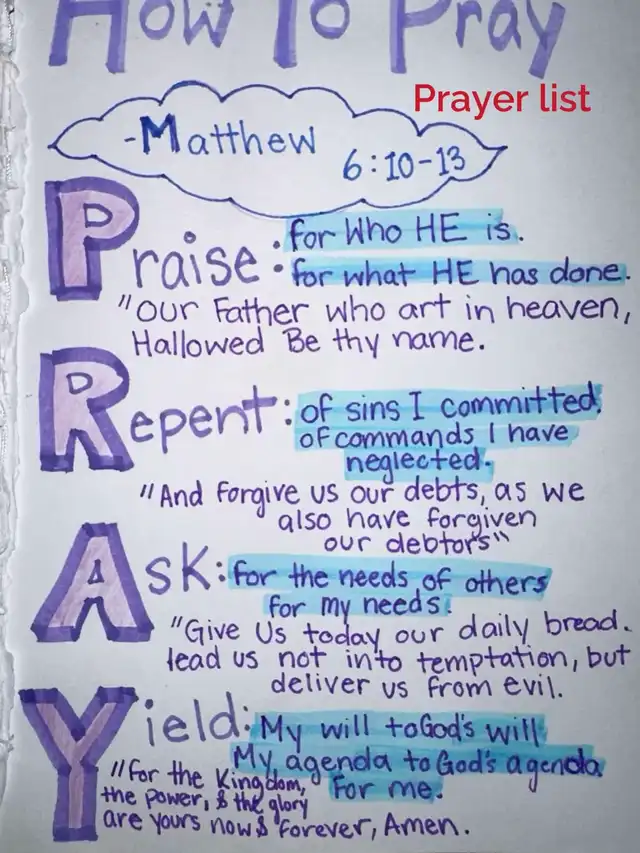 How To Pray
Prayer list
-Matthew
6:10-13
Praise: for Who HE is.
for what HE has done.
"Our Father who art in heaven,
Hallowed Be thy name.
Repent: of sins I committed.
of commands I have
neglected.
"And forgive us our debts, as we
also have forgiven
our debtors"
Ask: for the needs of others
for my needs.
"Give Us today our daily bread.
lead us not into temptation, but
deliver us from evil.
Yield: My will to God's will
My agenda to God's agenda
for me.
"For the Kingdom,
the power, & the glory
are yours now & forever, Amen.